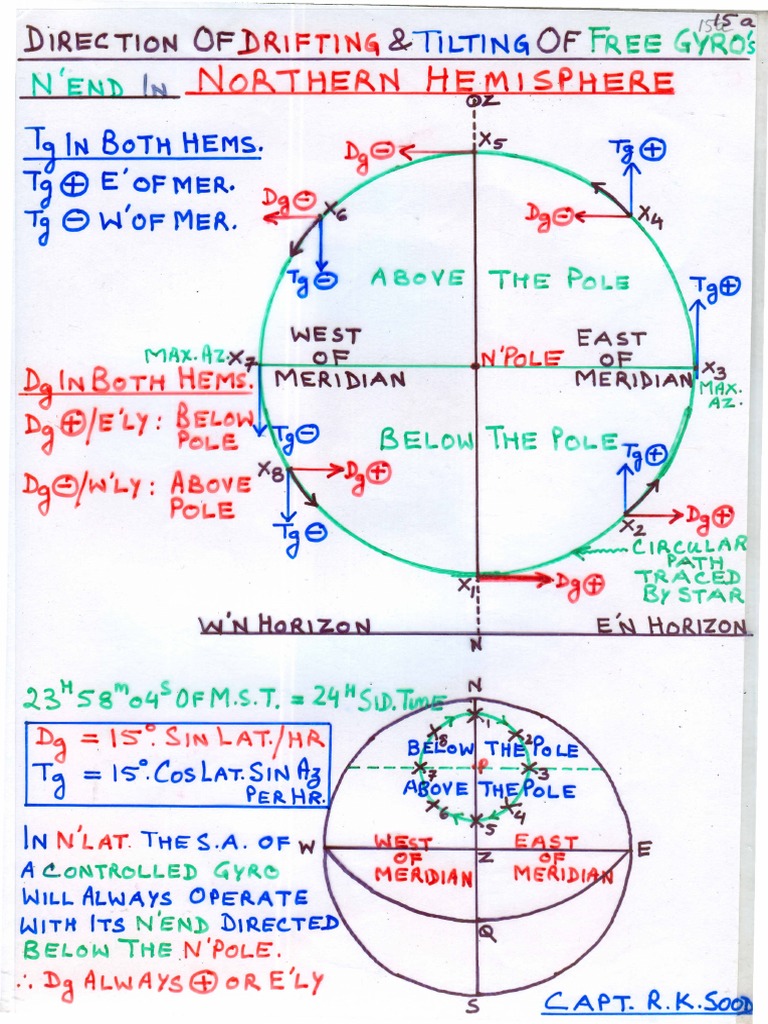 15a
DIRECTION OF DRIFTING & TILTING OF FREE GYRO'S
N'END IN NORTHERN HEMISPHERE
Tg IN BOTH HEMS.
Tg ⊕ E'OF MER.
Tg ⊖ W'OF MER.
Z
X5
Dg⊖
Tg⊕
Dg⊖
X4
Dg⊖
X6
Tg⊖
ABOVE THE POLE
Tg⊕
WEST OF MERIDIAN
EAST OF MERIDIAN
N'POLE
MAX. AZ. X7
X3
MAX. AZ.
Dg IN BOTH HEMS.
Dg⊕/E'LY: BELOW
POLE
Dg⊖/W'LY: ABOVE
POLE
BELOW THE POLE
Tg⊖
X8
Dg⊕
Tg⊖
Tg⊕
Dg⊕
X2
X1
Dg⊕
CIRCULAR
PATH
TRACED
BY STAR
W'N HORIZON
E'N HORIZON
N
23H 58m 04s OF M.S.T. = 24H SID. TIME
Dg = 15°. SIN LAT./HR
Tg = 15°. COS LAT. SIN Az
PER HR.
N
1
8
2
BELOW THE POLE
7
P
3
ABOVE THE POLE
6
4
5
W
E
Z
WEST
OF
MERIDIAN
EAST
OF
MERIDIAN
Q
S
IN N'LAT. THE S.A. OF
A CONTROLLED GYRO
WILL ALWAYS OPERATE
WITH ITS N'END DIRECTED
BELOW THE N'POLE.
∴ Dg ALWAYS ⊕ OR E'LY
CAPT. R.K. SOOD